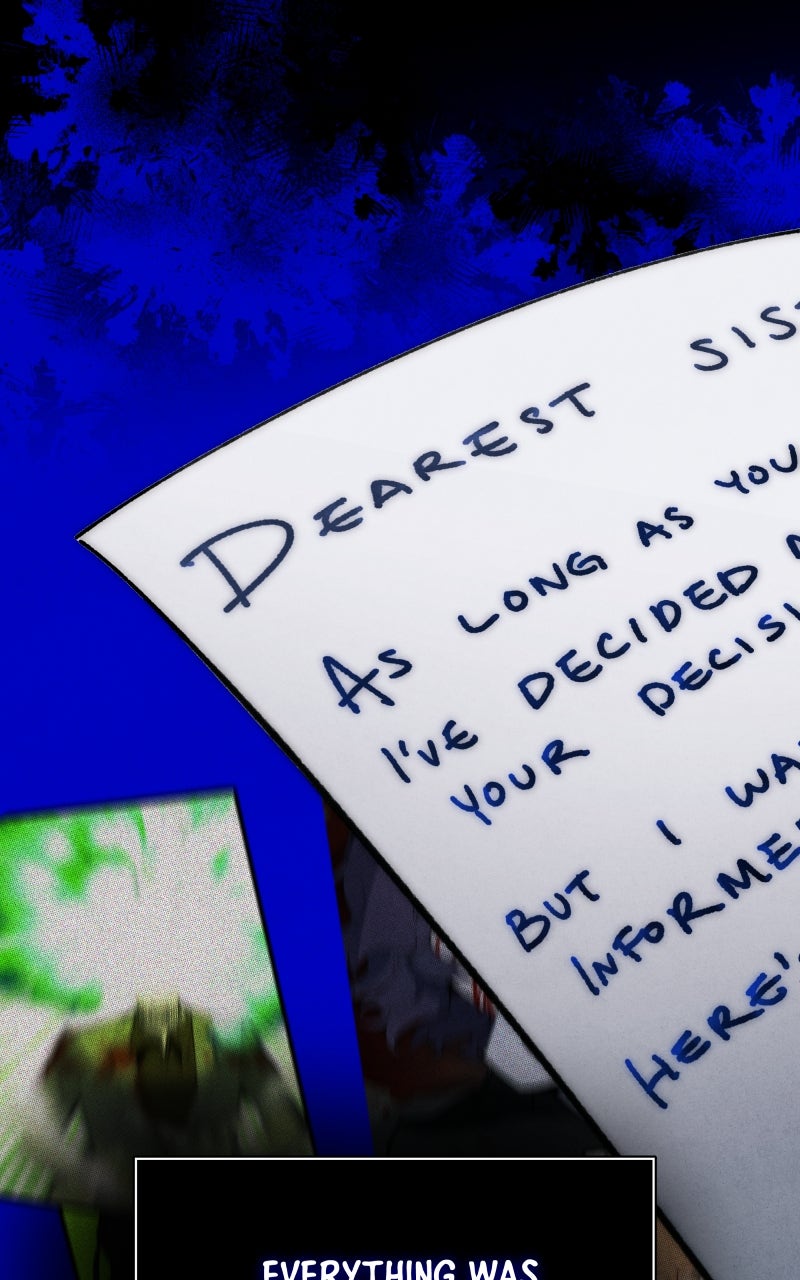 DEAREST SIS
AS LONG AS YOU
I'VE DECIDED
YOUR DECISI
BUT I WA
INFORME
HERE'S
EVERYTHING WAS